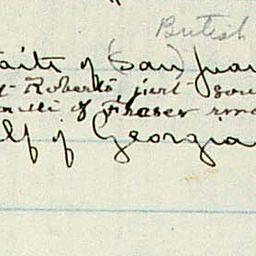 British
aits of (San) Juan
Roberts, just sou
of Fraser
lf of Georgia